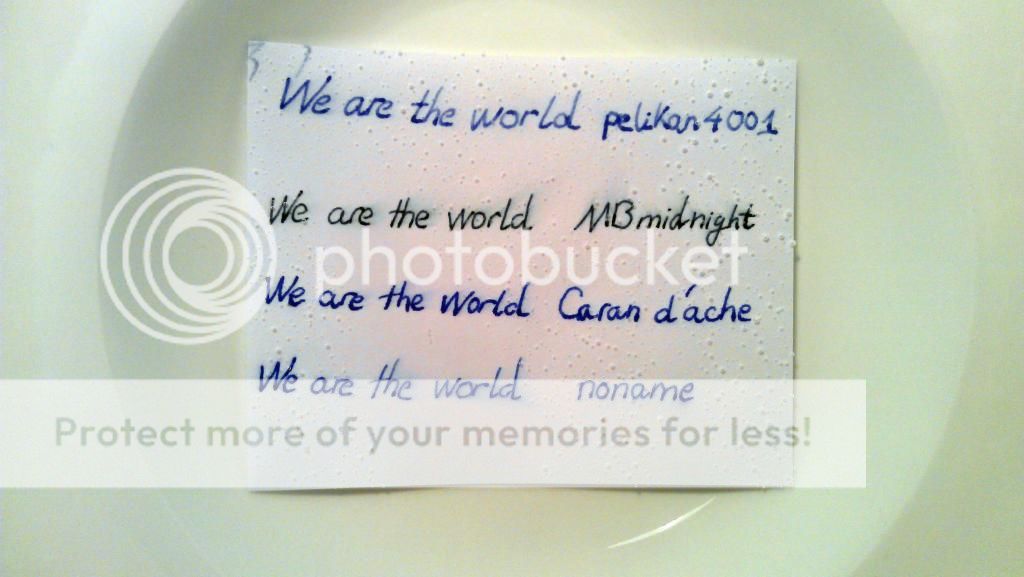 We are the world pelikan 4001
We are the world MB midnight
photobucket
We are the World Caran d'ache
We are the world noname
Protect more of your memories for less!